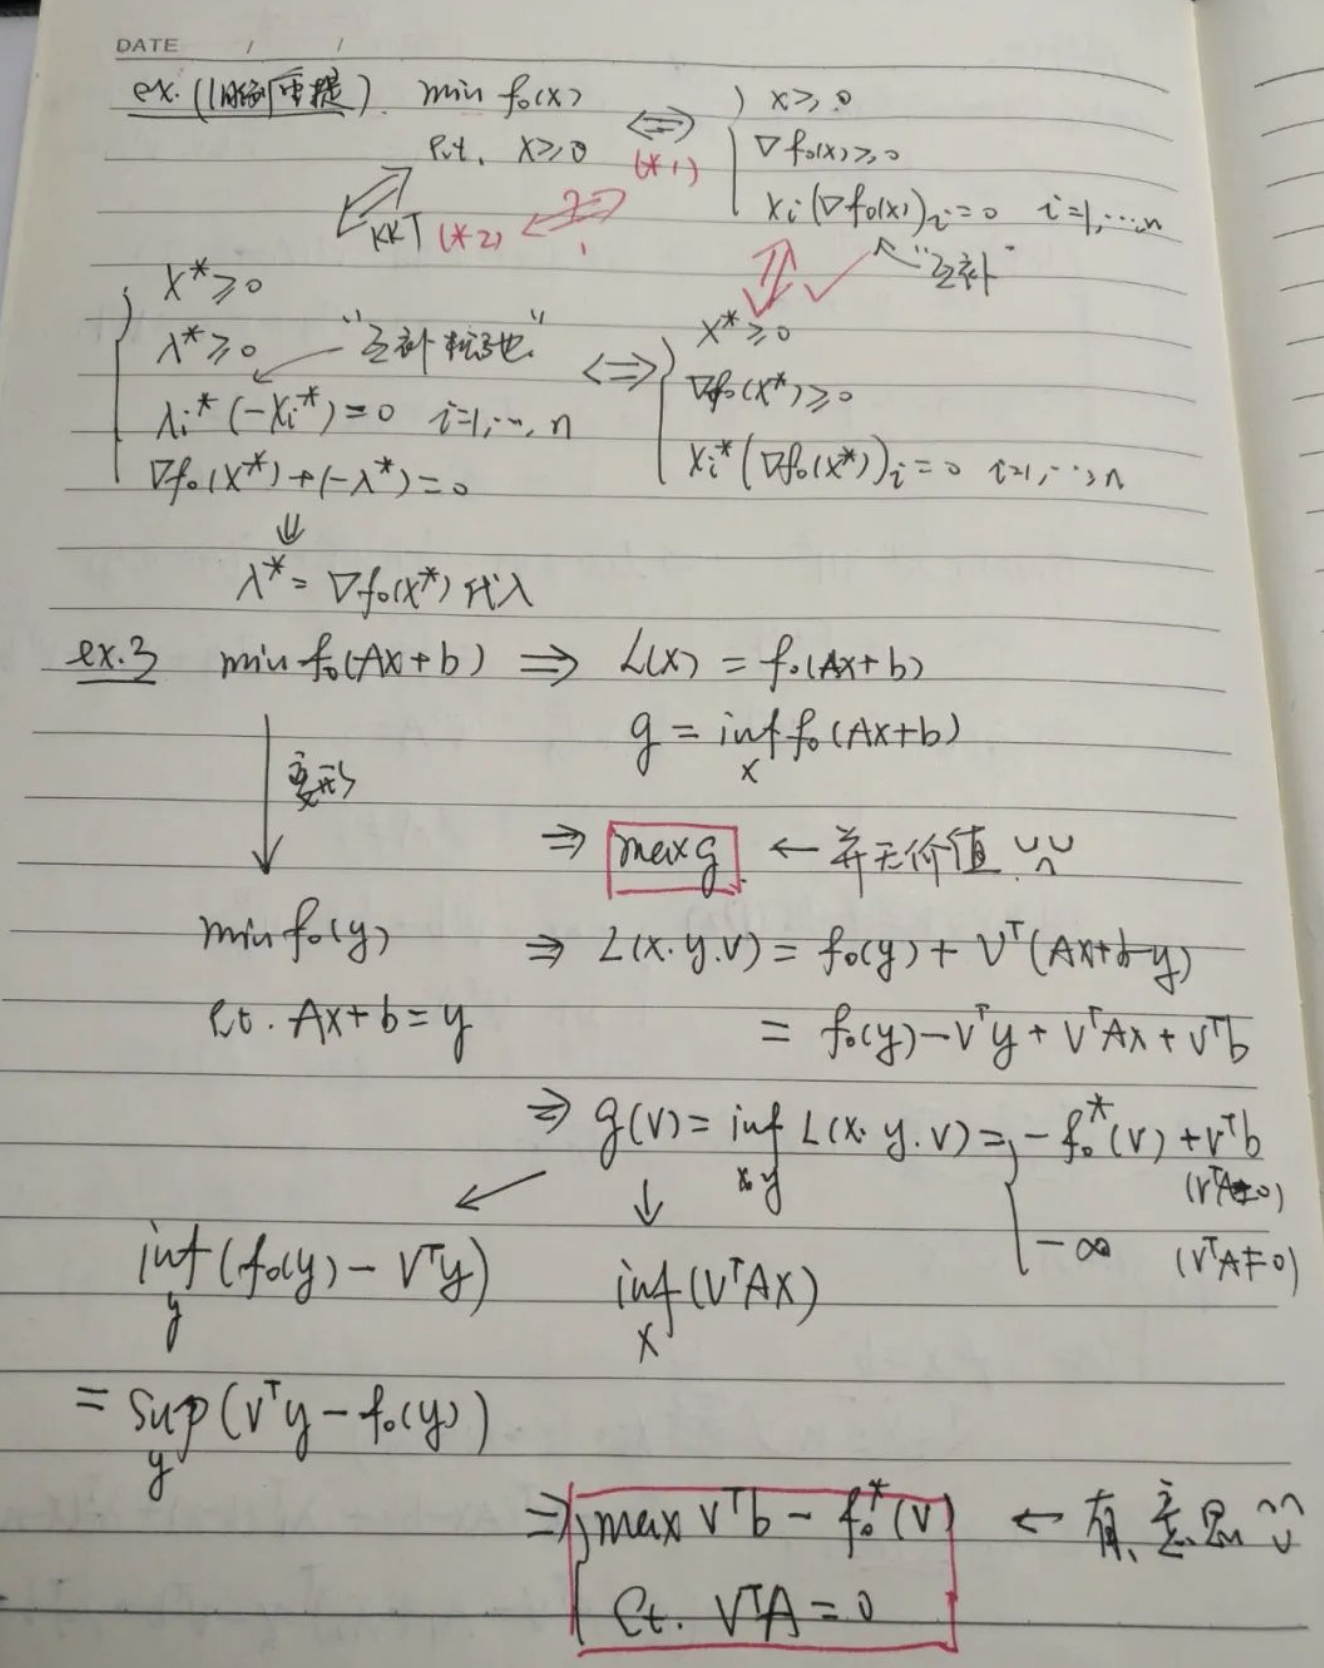 DATE / /
ex. (旧例重提) min f₀(x) ⟺ { x ≥ 0
s.t. x ≥ 0 (*1) ∇f₀(x) ≥ 0
xᵢ(∇f₀(x))ᵢ = 0 i=1,…,n
KKT (*2) ? ⟺ ⇕ ✓ ↖ "互补"
{ x* ≥ 0
λ* ≥ 0 "互补松弛"
λᵢ*(-xᵢ*) = 0 i=1,…,n
∇f₀(x*) + (-λ*) = 0
⟺ { x* ≥ 0
∇f₀(x*) ≥ 0
xᵢ*(∇f₀(x*))ᵢ = 0 i=1,…,n
⇓
λ* = ∇f₀(x*) 代入
ex.3 min f₀(Ax+b) ⇒ L(x) = f₀(Ax+b)
g = inf f₀(Ax+b)
x
↓ 变形
⇒ max g ← 并无价值
min f₀(y) ⇒ L(x.y.v) = f₀(y) + vᵀ(Ax+b-y)
s.t. Ax+b = y = f₀(y) - vᵀy + vᵀAx + vᵀb
⇒ g(v) = inf L(x.y.v) = { -f₀*(v) + vᵀb
x.y (vᵀA=0)
-∞ (vᵀA≠0)
↙ ↓
inf (f₀(y) - vᵀy) inf (vᵀAx)
y x
= sup (vᵀy - f₀(y))
y
⇒ { max vᵀb - f₀*(v) ← 有意思
s.t. vᵀA = 0